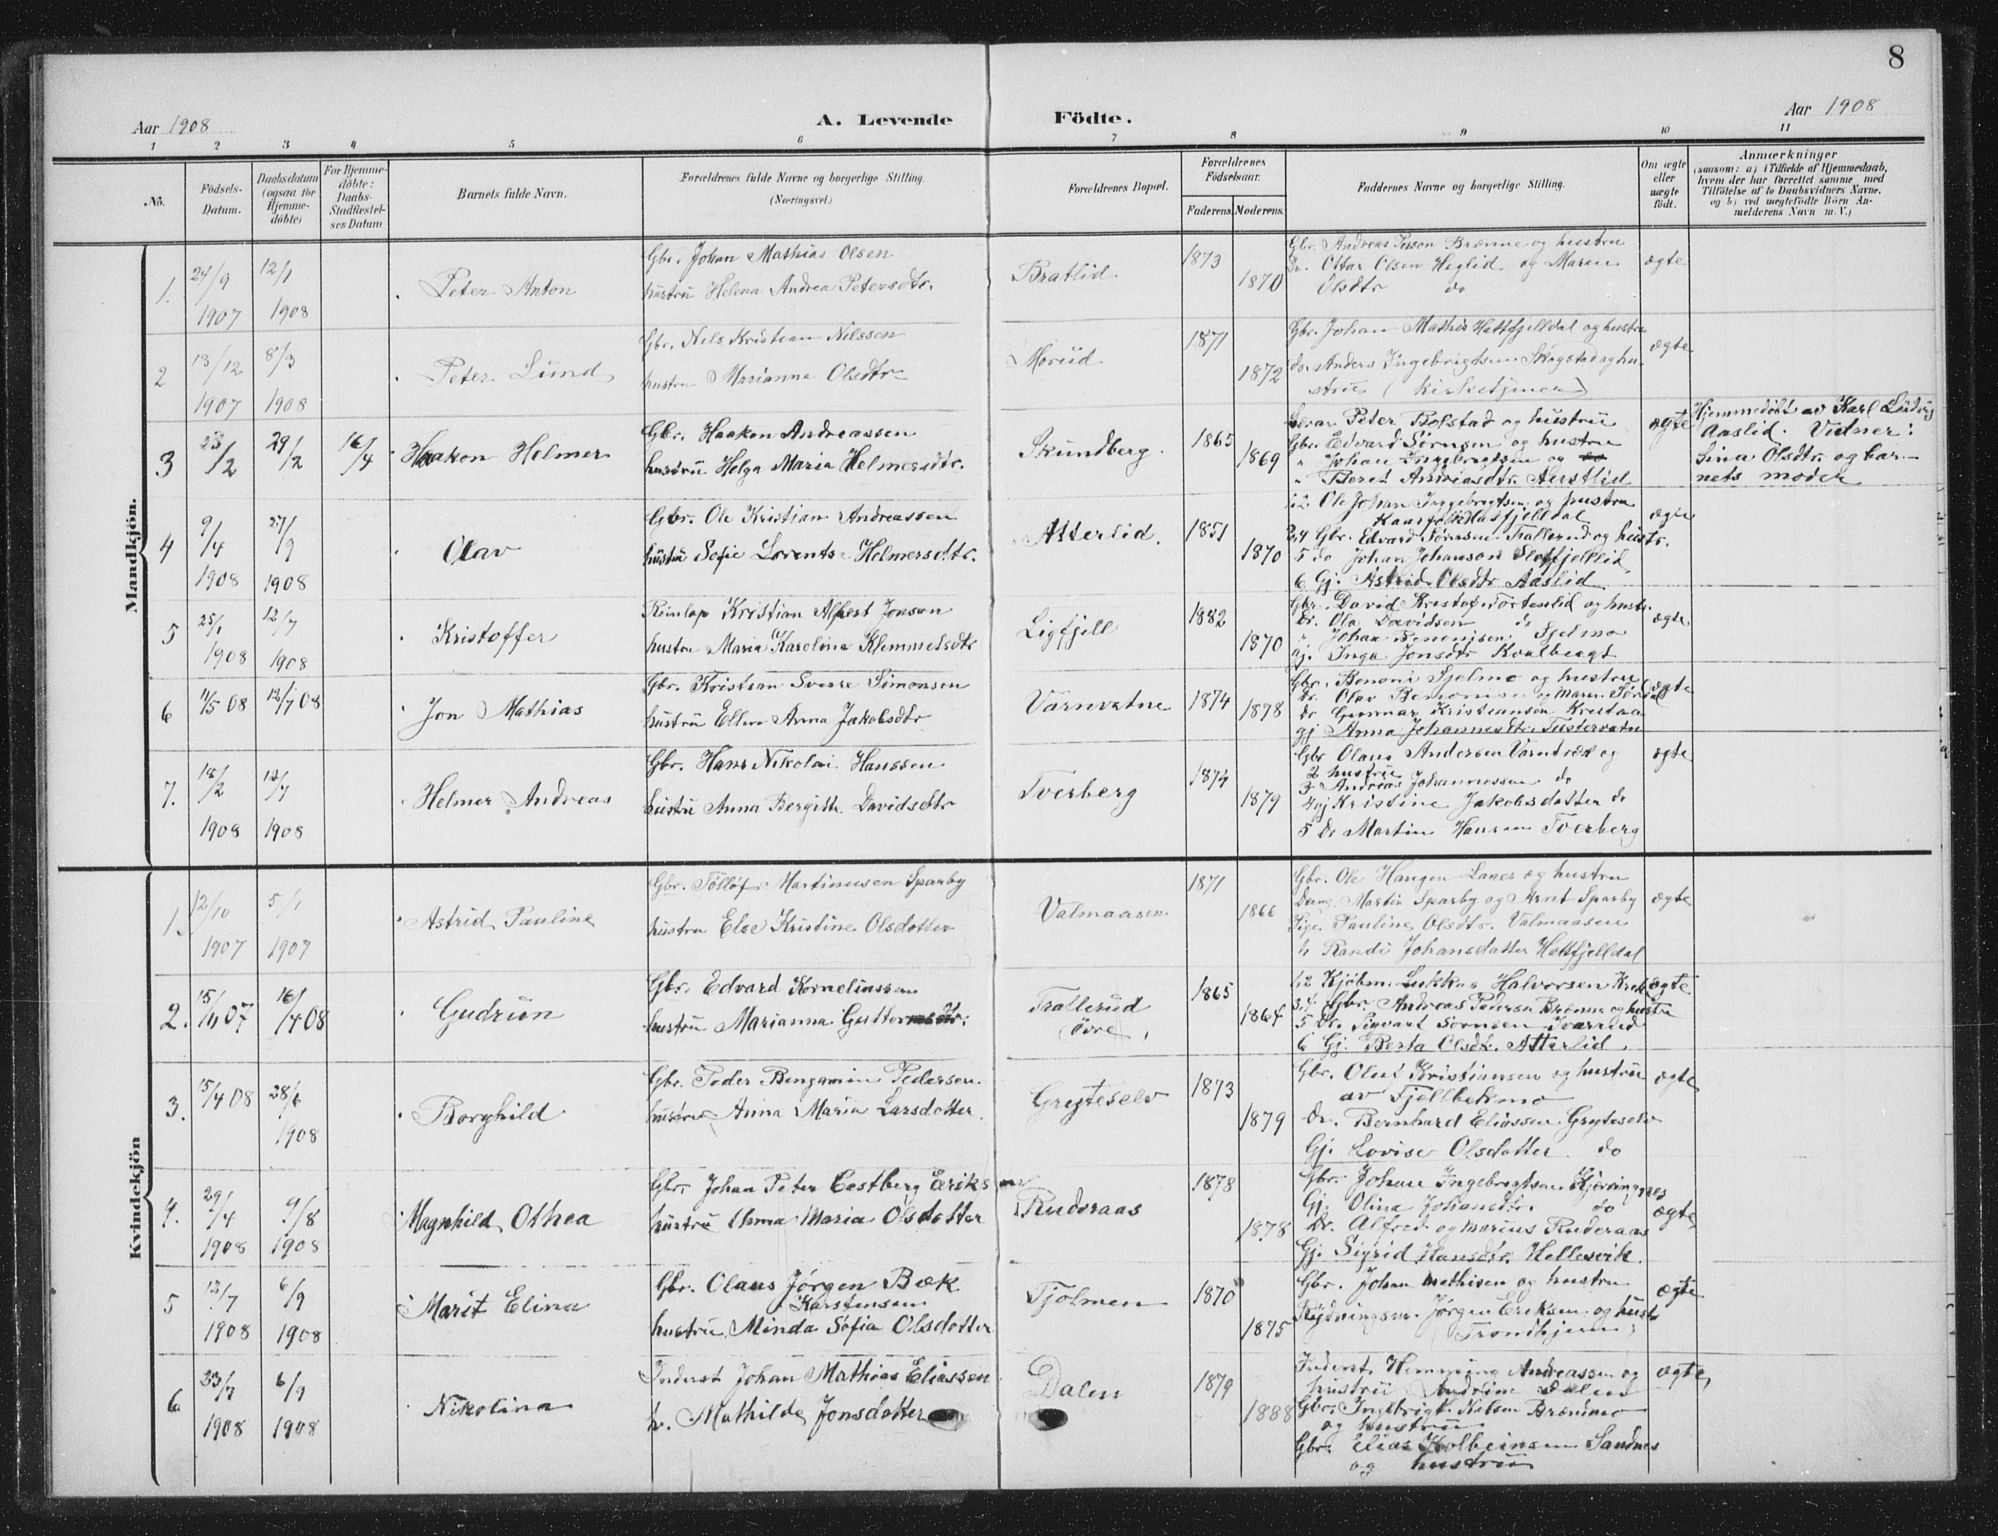 8
Aar 1908
A. Levende Födte.
Aar 1908
1 2 3 4 5 6 7 8 9 10 11
No.
Födsels-Datum.
Daabsdatum (ogsaa for Hjemme-döbte)
For Hjemme-döbte: Daabs-Stadfæstel-ses Datum
Barnets fulde Navn.
Forældrenes fulde Navne og borgerlige Stilling. (Næringsvei.)
Forældrenes Bopæl.
Forældrenes Födselsaar.
Faderens. Moderens.
Faddernes Navne og borgerlige Stilling.
Om ægte eller uægte födt.
Anmærkninger
(saasom: a) i Tilfælde af Hjemmedaab, hvem der har forrettet samme, med Tilföielse af to Daabsvidners Navne, og b) ved uægtefödte Börn An-melderens Navn m. V.)
Mandkjön.
1. 24/9 1907 12/1 1908 Peter Anton
Gbr. Johan Mathias Olsen
hustru Helena Andrea Petersdtr.
Bratlid 1873 1870
Gbr. Andreas Brænne og hustru
Dr. Ottar Olsen Heglid og Maren
Olsdtr do
ægte
2 13/12 1907 8/3 1908 Peter Lund
Gbr. Nels Kristian Nilssen
hustru Marianne Olsdtr
Moriid 1871 1872
Gbr. Johan Mathis Hattfjelldal og hustru
do Anders Ingebrigtsen Skogstad og hu-
stru (Kirketjener)
ægte
3 23/2 29/2 16/4 Haakon Helmer
Gbr. Haakon Andreassen
hustru Helga Maria Helmersdtr.
Skundberg. 1865 1869
Peter Rolstad og hustru
Gbr. Edvard Sørnsen og hustru
" Johan Ingebrigtsen og
" Beret Andreasdtr. Austlid
ægte
Hjemmedöbt av Karl Ludvig
Aaslid. Vidner:
Lina Olsdtr. og bar-
nets moder
4 9/4 1908 27/9 1908 Olav
Gbr. Ole Kristian Andreassen
hustru Sofie Lorents Helmersdtr.
Atterlid. 1851 1870
12 Ole Johan Ingebrigtsen og hustru
Hatfjelldal
3,4 Gbr. Edvard Sørnsen Trallerud og hustr.
5 do Johan Johanson Slotfjellid
6 Gj. Astrid Olsdtr Aaslid
ægte
5 25/1 1908 12/7 1908 Kristoffer
Kristian Albert Jonson
hustru Maria Karolina Klemmetsdtr
Ligfjell 1882 1870
Gbr. David Kristof. og hustr.
Dr. Ola Davidsen "
" Johan Benonisen Sjelmo
gj. Inga Jonsdtr Kvalbergt
ægte
6 11/5 08 12/7 08 Jon Mathias
Gbr. Kristian Sverre Simonsen
hustru Ellen Anna Jakobsdtr
Varnvatne 1874 1878
Gbr. Benoni Sjelmo og hustru
Dr. Olav og Maren
Dr Gunnar Kristiansen
gj Anna Johannesdtr.
ægte
7. 18/2 1908 12/7 1908 Helmer Andreas
Gbr. Hans Nikolai Hanssen
hustru Anna Bergith. Davidsdtr
Tverberg 1874 1879
Gbr Olaus Andersen og
2 hustru
3 Andreas Johannessen do
4 gj Kristine Jakobsdatter do
5 Dr Martin Hansen Tverberg
ægte
Kvindekjön
1. 12/10 1907 5/1 1907 Astrid Pauline
Gbr. Tölløf Martinusen Sparby
hustru Else Kristine Olsdotter
Valmaasen 1871 1866
Gbr. Ole Haugen og hustru
Martin Sparby og Arnt Sparby
Pige Pauline Olsdtr. Valmaasen
" Randi Johansdatter Hatfjelldal
ægte
2. 15/11 07 16/4 08 Gudrun
Gbr. Edvard Korneliussen
hustru Marianna Guttormsdtr.
Trallerud (øvre) 1865 1864
12 Kjöbm. Lukkas Halvorsen
3.4 Gbr. Andreas Pedersen Brenne og hustru
5 Dr. Sigvart Sörnsen
6 Gj. Berta Olsdtr. Atterlid
ægte
3. 15/4 08 28/6 1908 Borghild
Gbr. Peder Bengamin Pedersen
hustru Anna Maria Larsdotter
Grøyteselv 1873 1879
Gbr. Oluf Kristiansen og hustru
av Fjellbekmo
Dr. Bernhard Eliassen Grøyteselv
Gj. Lovise Olsdatter do
ægte
4. 29/4 1908 9/8 1908 Magnhild Othea
Gbr. Johan Peter Eastberg Eriksen
hustru Anna Maria Olsdatter
Rudsraas 1878 1878
Gbr. Johan Ingebrigtsen Kjerringnes
Gj. Olina Johansdtr. do
Dr. Alfred og Marius Ruderaas
Gj. Sigrid Hansdtr. Hellesvik
ægte
5 13/7 1908 6/9 1908 Marit Elina
Gbr. Olaus Jørgen Bæk
Karstensen
hustru Minda Sofia Olsdotter
Fjolmen 1870 1875
Gbr. Johan Mathisen og hustru
Jørgen Eriksen og hust.
Trondhjem
ægte
6 23/7 1908 6/9 1908 Nikolina
Inderst Johan Mathias Eliassen
h. Mathilde Jonsdatter
Dalen 1879 1888
Inderst. Hemming Andreassen og
hustru Andrine Dalen
Gbr. Ingebrigt Nielsen
og hustru
Gbr. Elias Kolbeinsen Sandnes
og hustru
ægte